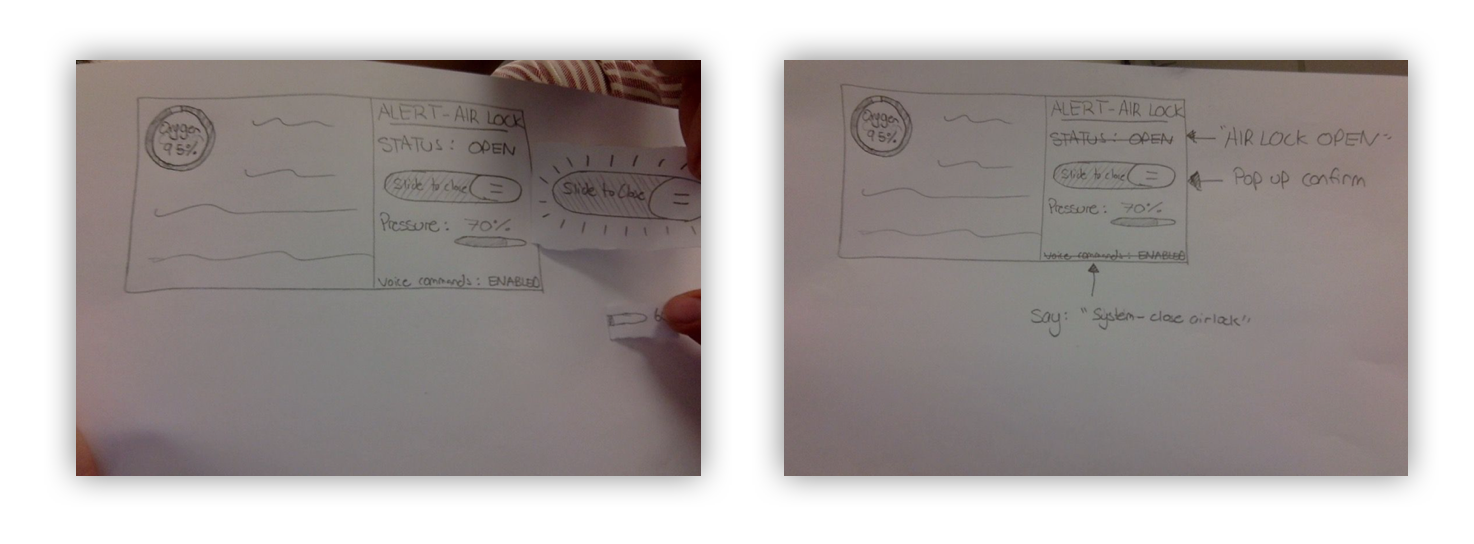 Oxygen
95%
ALERT-AIR LOCK
STATUS: OPEN
Slide to close
Slide to Close
Pressure: 70%
Voice commands: ENABLED
Oxygen
95%
ALERT-AIR LOCK
STATUS: OPEN
"AIR LOCK OPEN"
Slide to close
Pop up confirm
Pressure: 70%
Voice commands: ENABLED
Say: "System-close airlock"